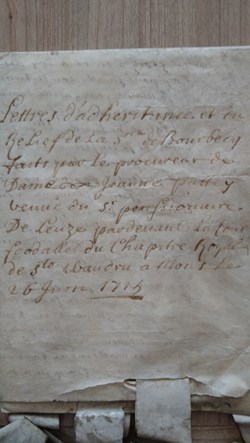 Lettres d'adheritance et du
Relief de La Srie de Bourbecq
faits par le procureur de
Dame Jeanne
venue du Sr pensionaire
De Leuze pardevant La Cour
feodalle du Chapitre Royal
de Ste Waudru a Mons Le
26 Juin 1715